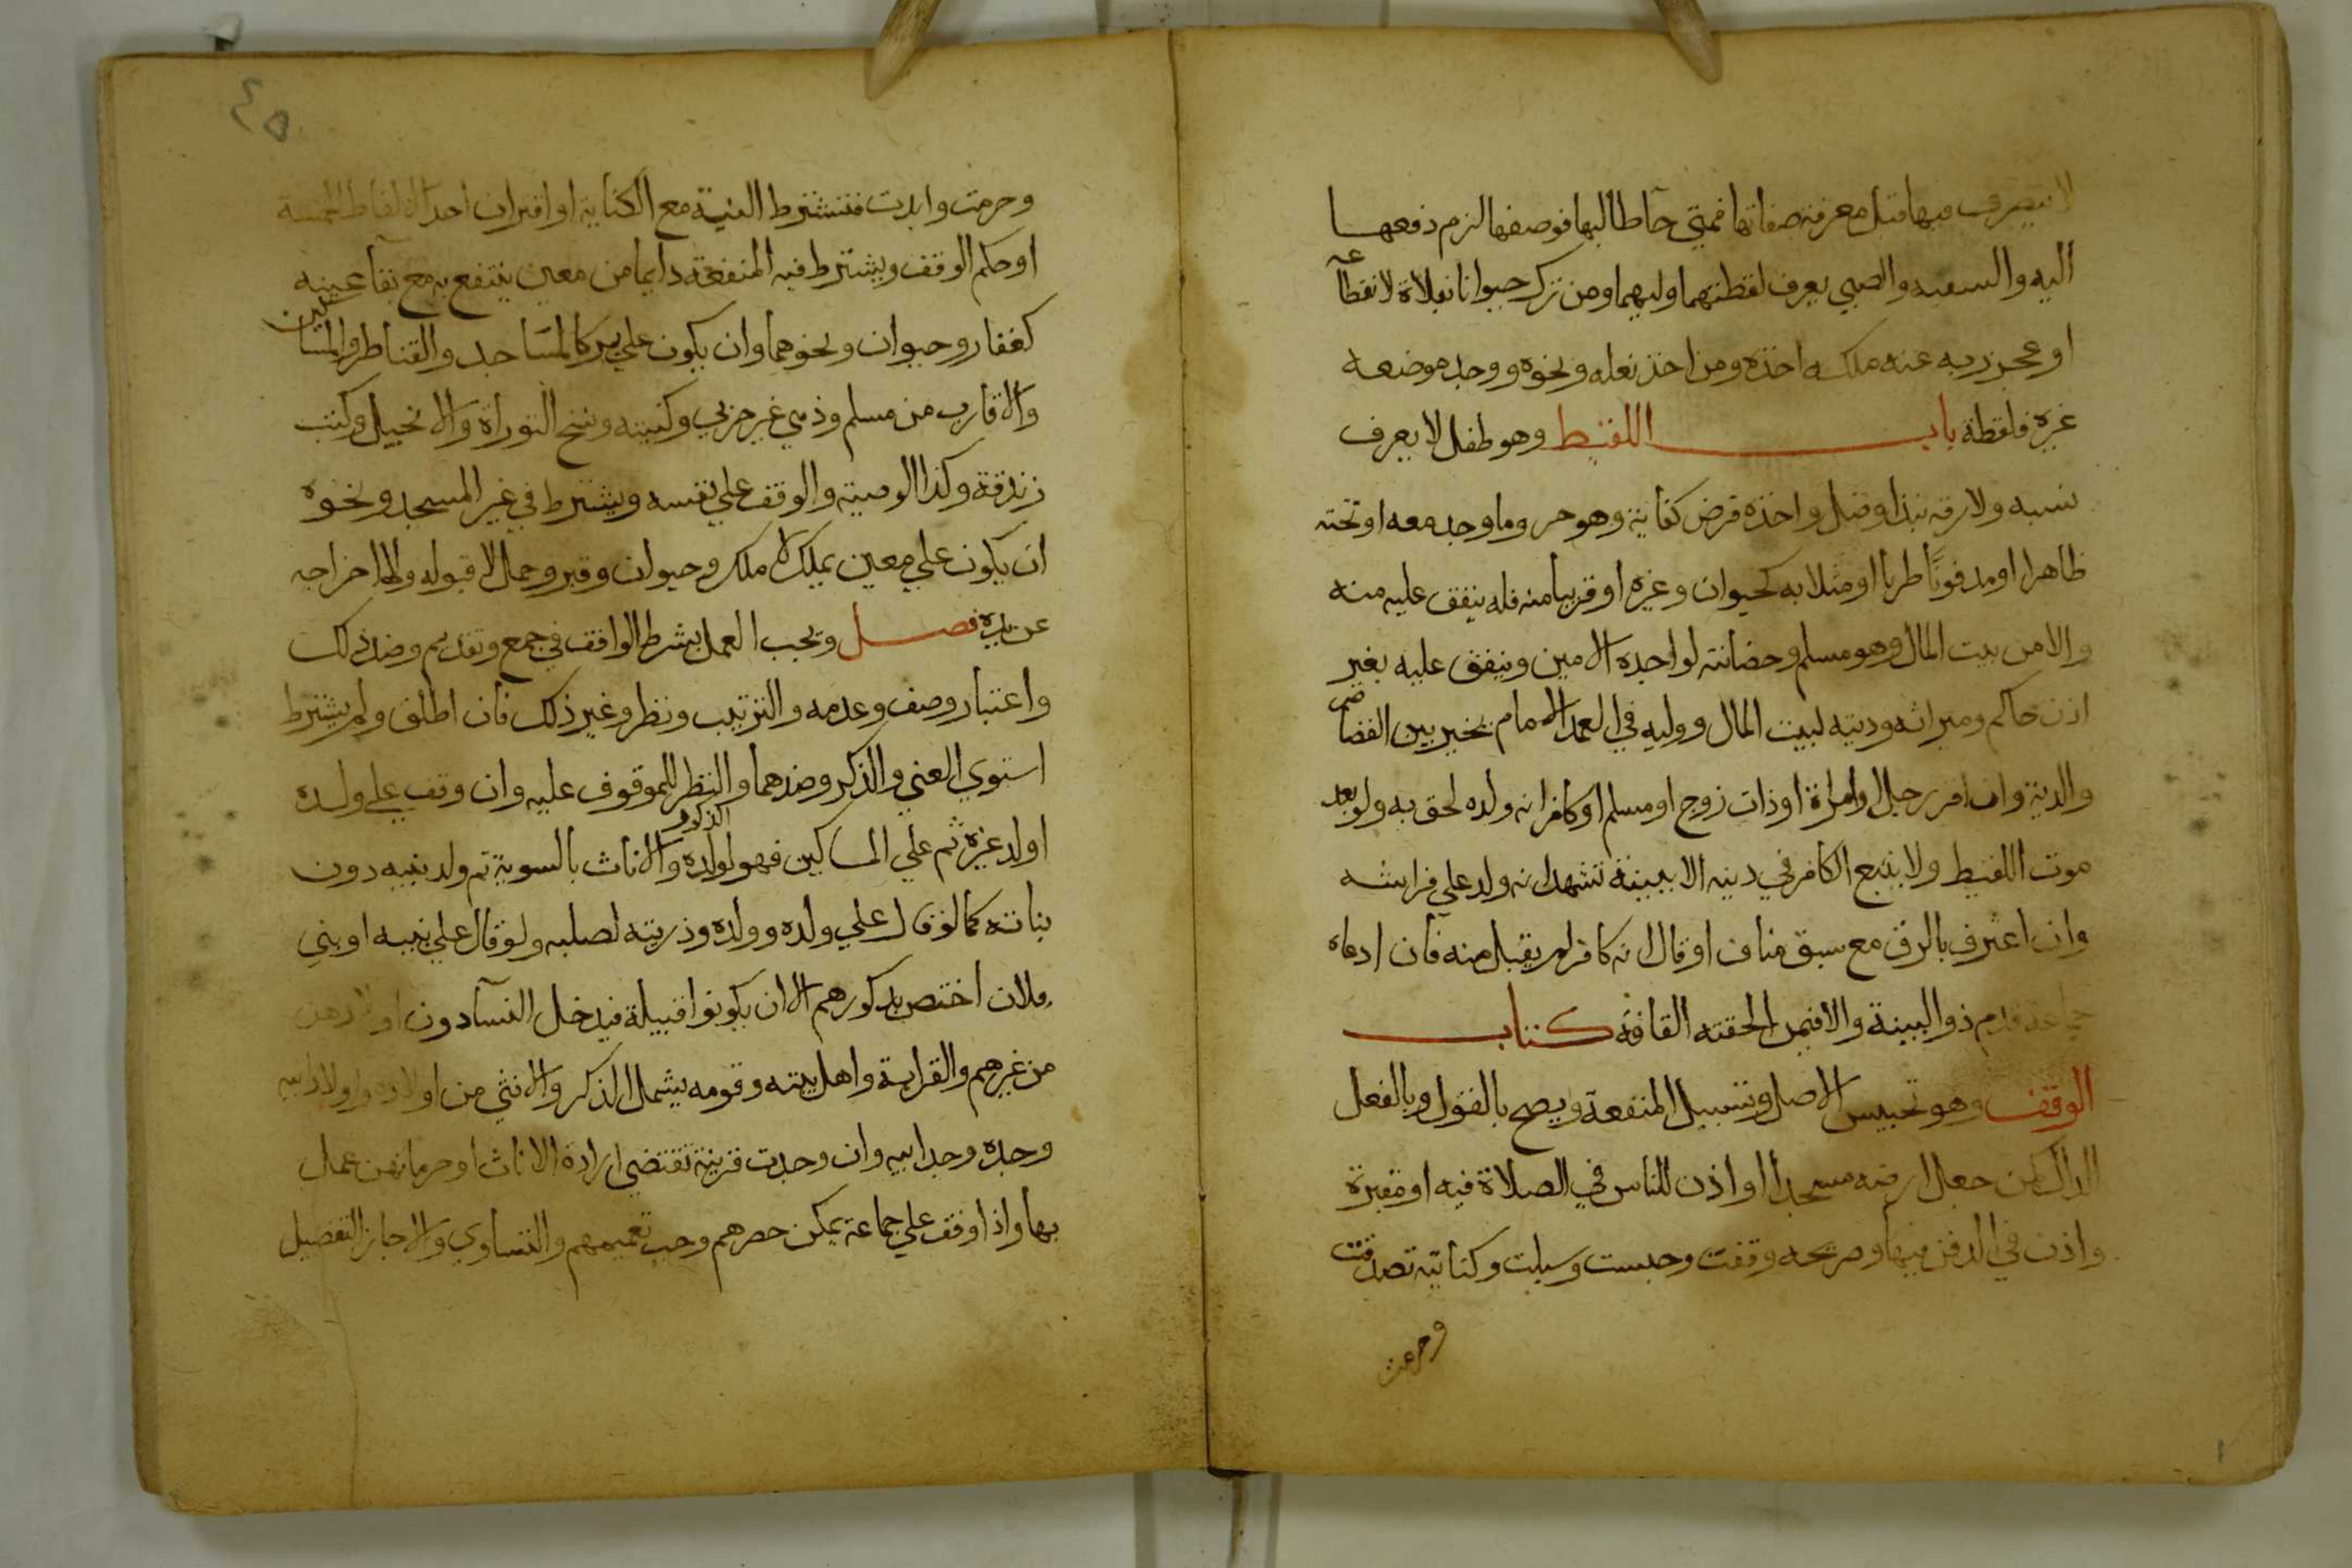 لا يتصرف فيها قبل معرفة صفاتها فمتى جا طالبها فوصفها لزم دفعهــا
اليه والسفيه والصبي يعرف لقطتهما وليهما ومن ترك حيوانا بفلاة لانقطاعه
او عجز ربه عنه ملكه اخذه ومن اخذ نعله ونحوه ووجد موضعه
غيره فلقطة باب اللقيط وهو طفل لا يعرف
نسبه ولا رقه نبذ او ضل واخذه فرض كفاية وهو حر وما وجد معه او تحته
ظاهرا او مدفونا طريا او متصلا به كحيوان وغيره او قريبا منه فله ينفق عليه منه
والا من بيت المال وهو مسلم وحضانته لواجده الامين وينفق عليه بغير
اذن حاكم وميراثه وديته لبيت المال ووليه في العمد الامام يخير بين القصاص
والدية وان اقر رجل او امراة او ذات زوج او مسلم او كافر انه ولده لحق به ولو بعد
موت اللقيط ولا يتبع الكافر في دينه الا ببينة تشهد انه ولد على فراشه
وان اعترف بالرق مع سبق مناف او قال انه كافر لم يقبل منه فان ادعاه
جماعة قدم ذو البينة والا فبمن الحقته القافة كتاب
الوقف وهو تحبيس الاصل وتسبيل المنفعة ويصح بالقول وبالفعل
الدال كمن جعل ارضه مسجدا او اذن للناس في الصلاة فيه او مقبرة
واذن في الدفن فيها وصريحه وقفت وحبست وسبلت وكنايته تصدقت
وحرمت
٤٥
وحرمت وابدت فتشترط النية مع الكناية او اقتران احد الالفاظ الخمسة
او حكم الوقف ويشترط فيه المنفعة دايما من معين ينتفع به مع بقا عينه
كعقار وحيوان ونحوهما وان يكون على بر كالمساجد والقناطر والمساكين
والاقارب من مسلم وذمي غير حربي وكنيسة ونسخ التوراة والانجيل وكتب
زندقة وكذا الوصية والوقف على نفسه ويشترط في غير المسجد ونحوه
ان يكون على معين يملك لا ملك وحيوان وقبر وحمل لا قبوله ولا اخراجه
عن يده فصل ويجب العمل بشرط الواقف في جمع وتقديم وضد ذلك
واعتبار وصف وعدمه والترتيب ونظر وغير ذلك فان اطلق ولم يشترط
استوي الغني والذكر وضدهما والنظر للموقوف عليه وان وقف على ولده
او ولد غيره ثم على المساكين فهو لولده الذكور والاناث بالسوية ثم ولد بنيه دون
بناته كما لو قال على ولده وولده وذريته لصلبه ولو قال على بنيه او بني
فلان اختص بذكورهم الا ان يكونوا قبيلة فيدخل النسآ دون اولادهن
من غيرهم والقرابة واهل بيته وقومه يشمل الذكر والانثى من اولاده واولاد ابيه
وجده وجد ابيه وان وجدت قرينة تقتضي ارادة الاناث او حرمانهن عمل
بها واذا وقف على جماعة يمكن حصرهم وجب تعميمهم والتساوي والا جاز التفضيل